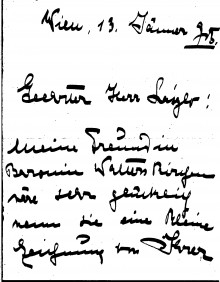 Wien, 13. Jänner 95.
Geehrter Herr
Meine Freundin
Baronin
wäre sehr glücklich
wenn sie eine kleine
Zeichnung von Ihrer